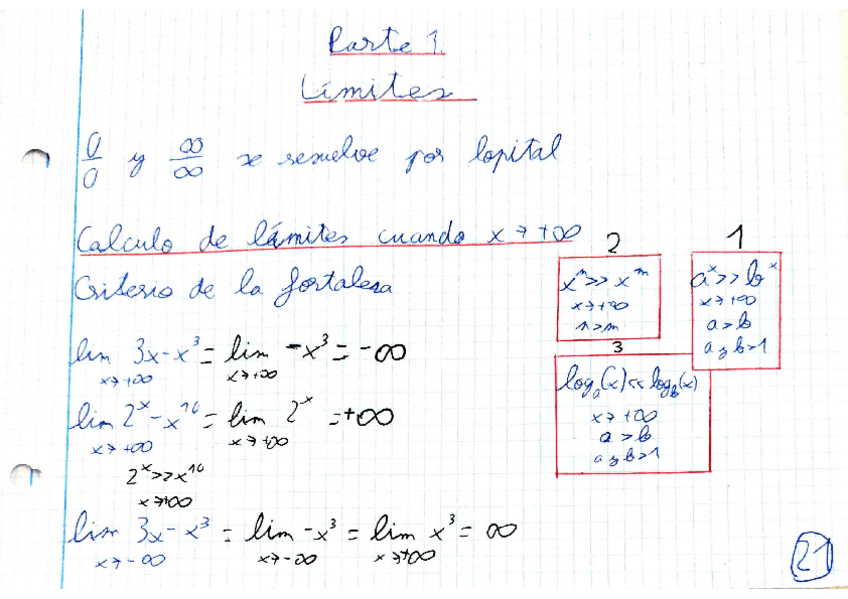 Parte 1.
Límites
0/0 y ∞/∞ se resuelve por lopital
Calculo de límites cuando x→+∞
Criterio de la fortaleza
2
x^n >> x^m
x→+∞
n>m
1
a^x >> b^x
x→+∞
a>b
a y b>1
3
log_a(x) << log_b(x)
x→+∞
a>b
a y b>1
lim 3x-x³ = lim -x³ = -∞
x→+∞ x→+∞
lim 2^x-x^10 = lim 2^x = +∞
x→+∞ x→+∞
2^x>>x^10
x→+∞
lim 3x-x³ = lim -x³ = lim x³ = ∞
x→-∞ x→-∞ x→+∞
21